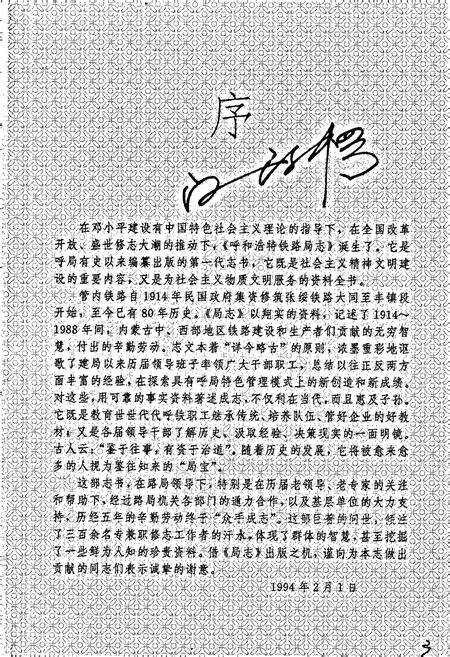 序
在邓小平建设有中国特色社会主义理论的指导下，在全国改革
开放、盛世修志大潮的推动下，《呼和浩特铁路局志》诞生了。它是
呼局有史以来编纂出版的第一代志书，它既是社会主义精神文明建
设的重要内容，又是为社会主义物质文明服务的资料全书。
管内铁路自1914年民国政府集资修筑张绥铁路大同至丰镇段
开始，至今已有80年历史。《局志》以翔实的资料，记述了1914～
1988年间，内蒙古中、西部地区铁路建设和生产者们贡献的无穷智
慧，付出的辛勤劳动。志文本着“详今略古”的原则，浓墨重彩地讴
歌了建局以来历届领导班子率领广大干部职工，总结以往正反两方
面丰富的经验，在探索具有呼局特色管理模式上的新创造和新成绩。
对这些，用可靠的事实资料著述成志，不仅利在当代，而且惠及子孙。
它既是教育世世代代呼铁职工继承传统、培养队伍、管好企业的好教
材；又是各届领导干部了解历史、汲取经验、决策现实的一面明镜。
古人云：“鉴于往事，有资于治道”。随着历史的发展，它将被愈来愈
多的人视为鉴往知来的“局宝”。
这部志书，在路局领导下，特别是在历届老领导、老专家的关注
和帮助下，经过路局机关各部门的通力合作，以及基层单位的大力支
持，历经五年的辛勤劳动终于“众手成志”。这部巨著的问世，倾注
了三百余名专兼职修志工作者的汗水，体现了群体的智慧，甚至挖掘
了一些鲜为人知的珍贵资料。借《局志》出版之机，谨向为本志做出
贡献的同志们表示诚挚的谢意。
1994年2月1日
3